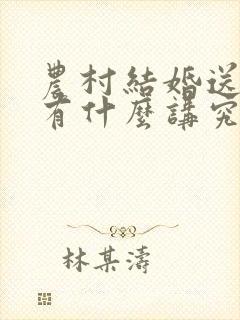 農村結婚送
有什麼講究
林某濤